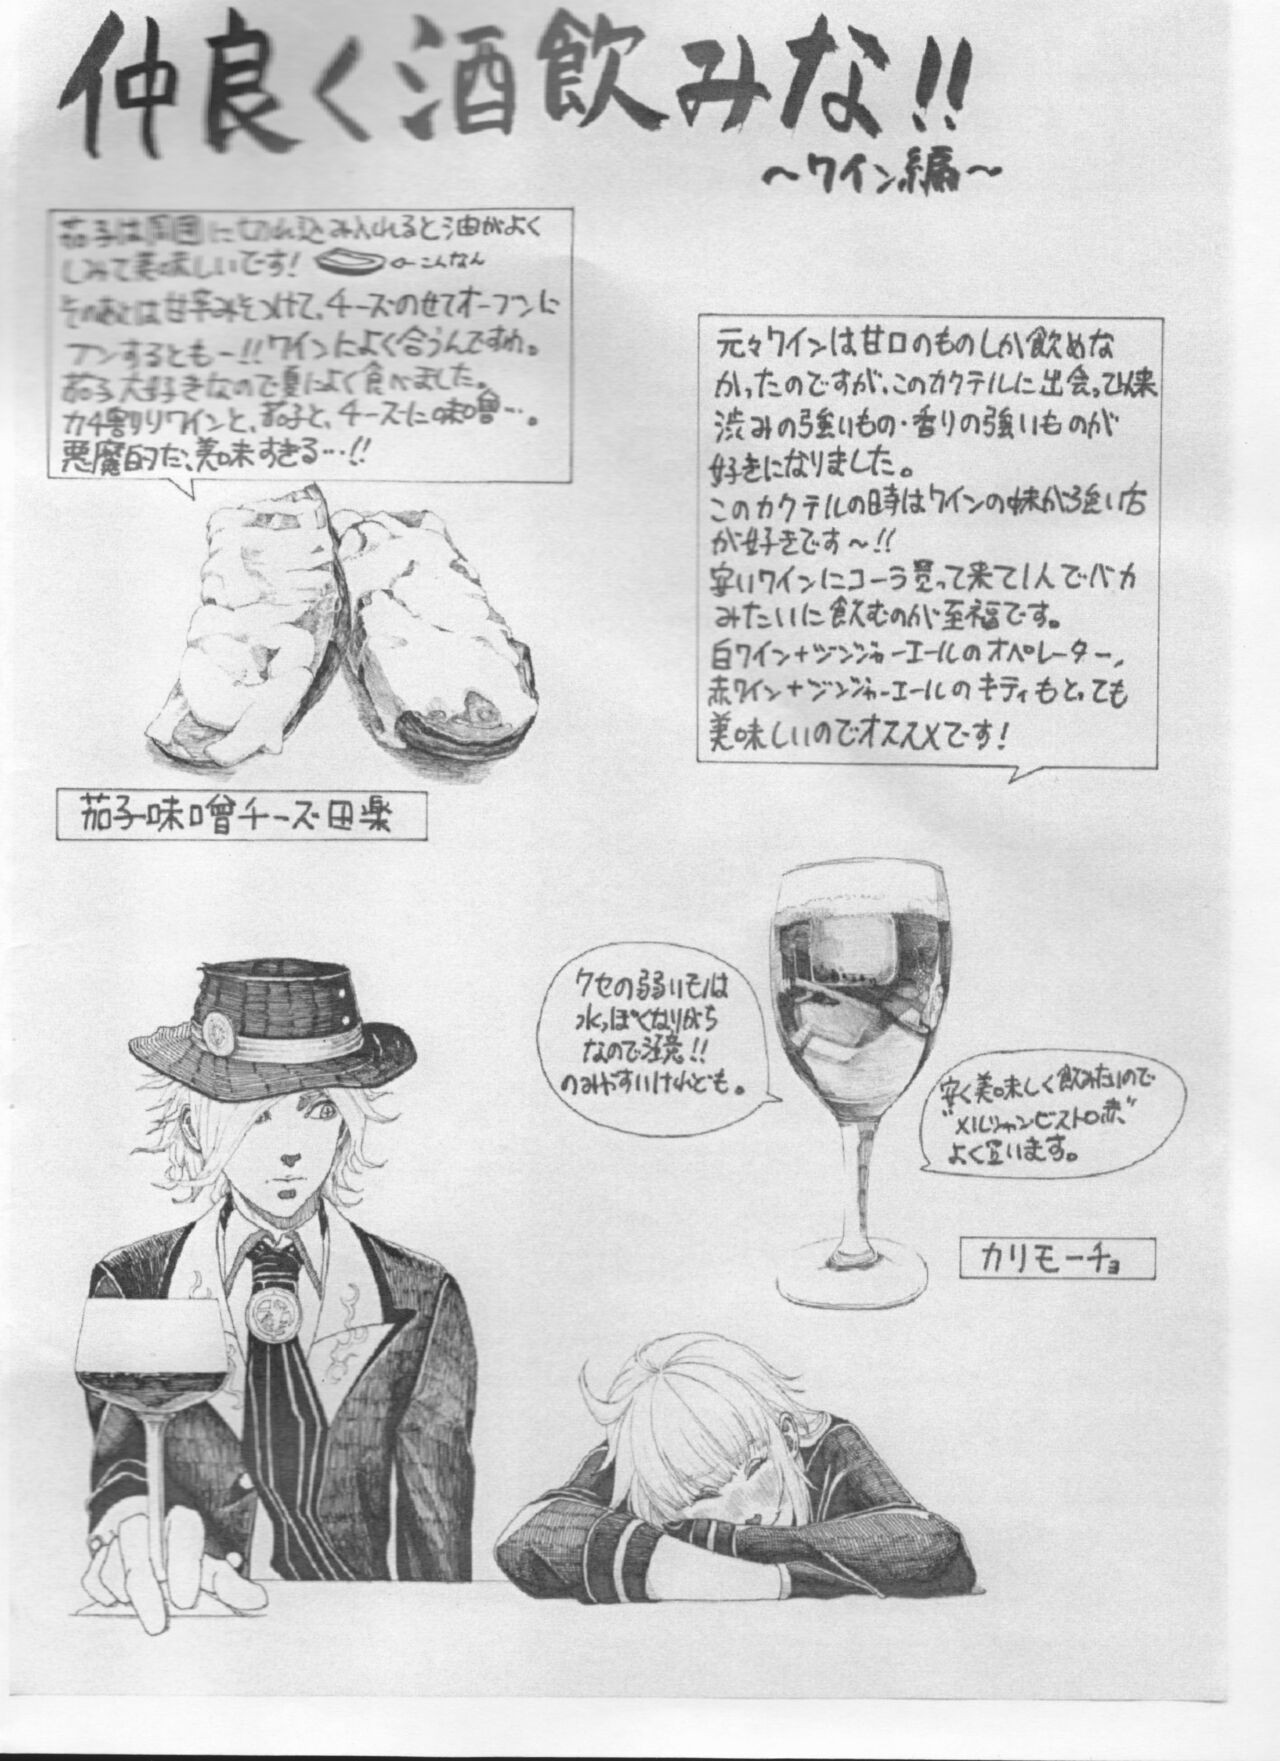 仲良く酒飲みな!!
〜ワイン編〜
茄子は周囲に切れ込み入れると油がよく
しみて美味しいです! ←こんなん
そのあとは甘辛みそつけて、チーズのせてオーブンに
ブンするともー!!ワインによく合うんですわ。
茄子大好きなので夏によく食べました。
カチ割りワインと、茄子と、チーズに味噌…。
悪魔的だ、美味すぎる…!!
茄子味噌チーズ田楽
元々ワインは甘口のものしか飲めな
かったのですが、このカクテルに出会って以来
渋みの強いもの・香りの強いものが
好きになりました。
このカクテルの時はワインの味が強い店
が好きです〜!!
安いワインにコーラ買って来て1人でバカ
みたいに飲むのが至福です。
白ワイン+ジンジャーエールのオペレーター、
赤ワイン+ジンジャーエールのキティもとても
美味しいのでオススメです!
クセの弱いモノは
水っぽくなりがち
なので注意!!
のみやすいけれども。
安く美味しく飲みたいので
"メルシャンビストロ赤"
よく買います。
カリモーチョ